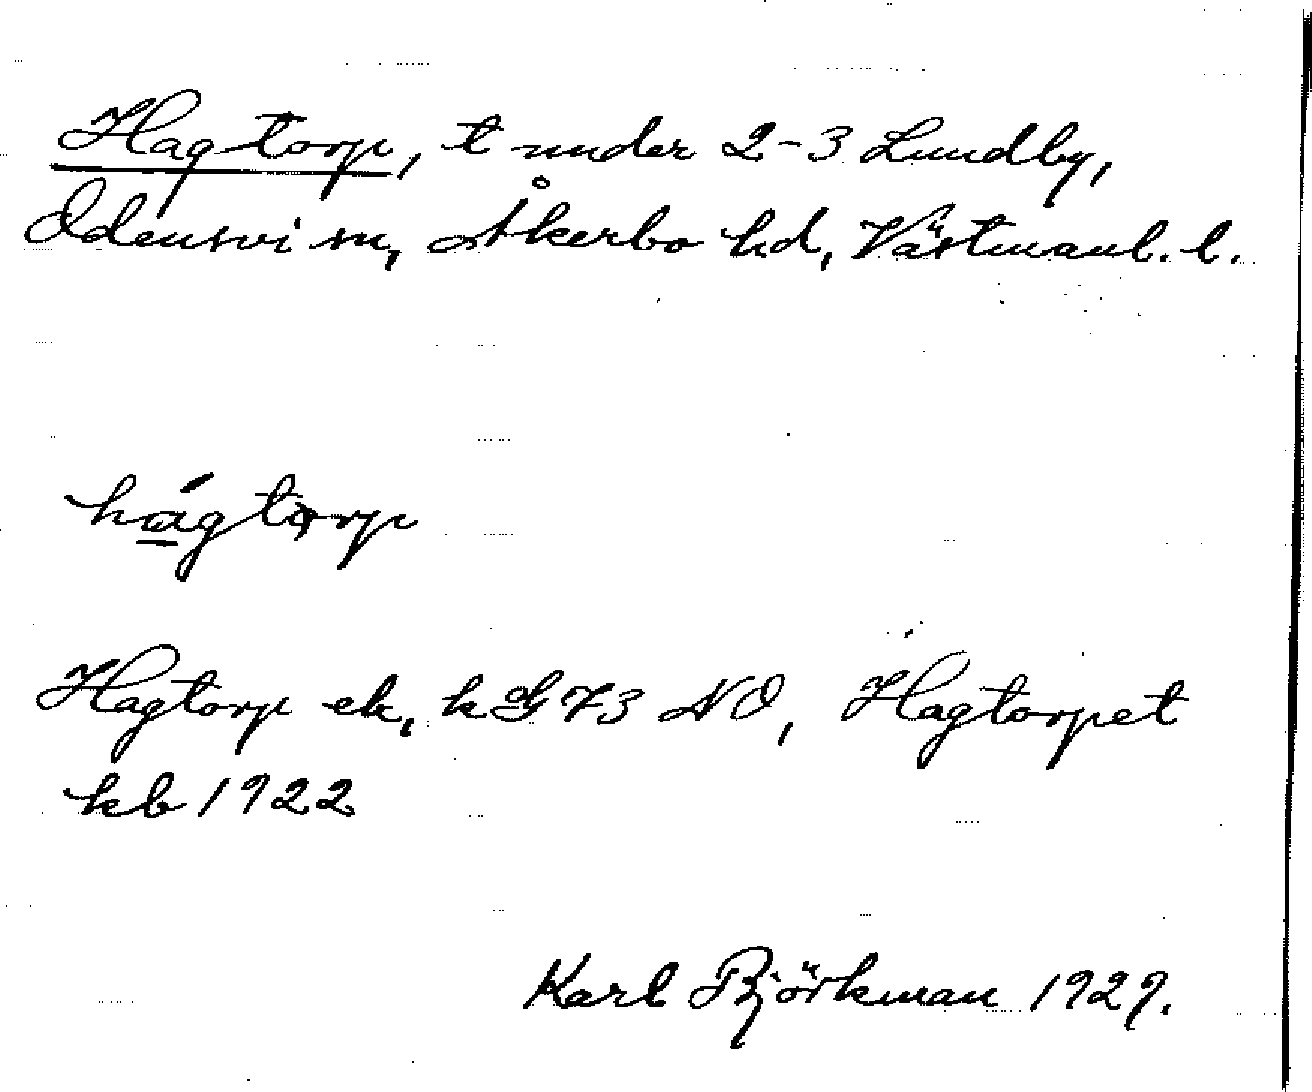 Hagtorp, t under 2-3 Lundby,
Odensvi sn, Åkerbo hd, Västmanl. l.
hágtorp
Hagtorp ek, k G 73 NO, Hagtorpet
kb 1922
Karl Björkman 1929.